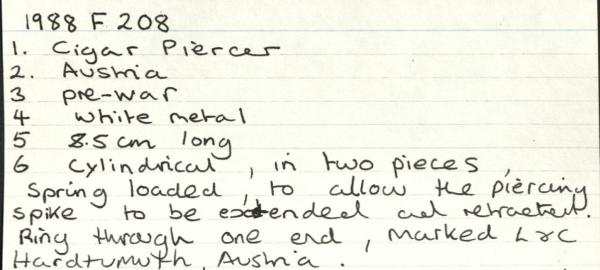 1988 F 208
1. Cigar Piercer
2. Austria
3 pre-war
4 white metal
5 8.5 cm long
6 cylindrical, in two pieces,
Spring loaded, to allow the piercing
spike to be extended and retracted.
Ring through one end, marked L&C
Hardtumuth, Austria.